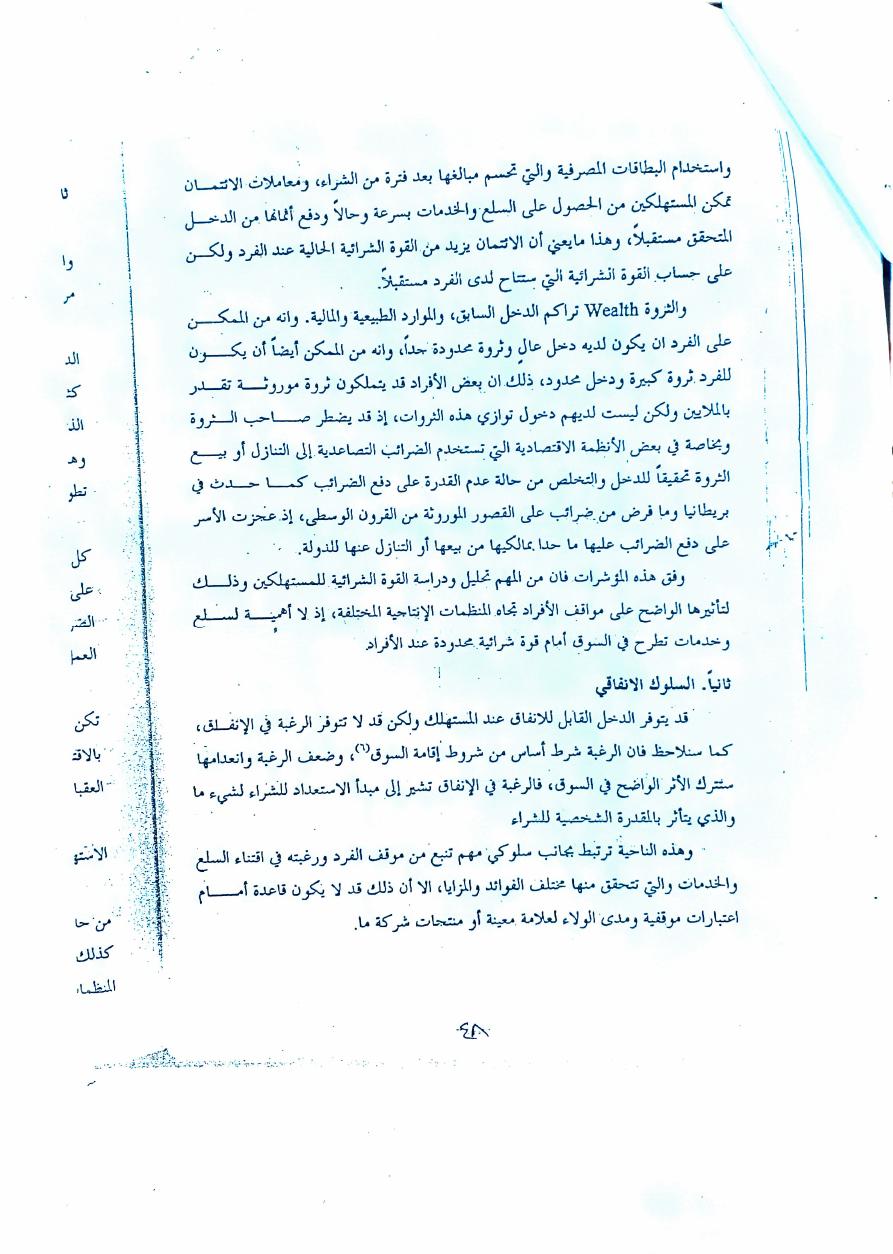 واستخدام البطاقات المصرفية والتي تحسم مبالغها بعد فترة من الشراء، ومعاملات الائتمـــان
تمكن المستهلكين من الحصول على السلع والخدمات بسرعة وحالاً ودفع أثمانها من الدخـــل
المتحقق مستقبلاً، وهذا مايعني أن الائتمان يزيد من القوة الشرائية الحالية عند الفرد ولكـــن
على حساب القوة الشرائية التي ستتاح لدى الفرد مستقبلاً.
والثروة Wealth تراكم الدخل السابق، والموارد الطبيعية والمالية. وانه من الممكـــن
على الفرد ان يكون لديه دخل عالٍ وثروة محدودة جداً، وانه من الممكن أيضاً أن يكـــون
للفرد ثروة كبيرة ودخل محدود، ذلك ان بعض الأفراد قد يتملكون ثروة موروثـــة تقـــدر
بالملايين ولكن ليست لديهم دخول توازي هذه الثروات، إذ قد يضطر صـــاحب الـــثروة
وبخاصة في بعض الأنظمة الاقتصادية التي تستخدم الضرائب التصاعدية إلى التنازل أو بيـــع
الثروة تحقيقاً للدخل والتخلص من حالة عدم القدرة على دفع الضرائب كمـــا حـــدث في
بريطانيا وما فرض من ضرائب على القصور الموروثة من القرون الوسطى، إذ عجزت الأسر
على دفع الضرائب عليها ما حدا بمالكيها من بيعها أو التنازل عنها للدولة.
وفق هذه المؤشرات فان من المهم تحليل ودراسة القوة الشرائية للمستهلكين وذلـــك
لتأثيرها الواضح على مواقف الأفراد تجاه المنظمات الإنتاجية المختلفة، إذ لا أهميـــة لســـلع
وخدمات تطرح في السوق أمام قوة شرائية محدودة عند الأفراد.
ثانياً. السلوك الانفاقي
قد يتوفر الدخل القابل للانفاق عند المستهلك ولكن قد لا تتوفر الرغبة في الإنفـــاق،
كما سنلاحظ فان الرغبة شرط أساس من شروط إقامة السوق(٦)، وضعف الرغبة وانعدامها
ستترك الأثر الواضح في السوق، فالرغبة في الإنفاق تشير إلى مبدأ الاستعداد للشراء لشيء ما
والذي يتأثر بالمقدرة الشخصية للشراء
وهذه الناحية ترتبط بجانب سلوكي مهم تنبع من موقف الفرد ورغبته في اقتناء السلع
والخدمات والتي تتحقق منها مختلف الفوائد والمزايا، الا أن ذلك قد لا يكون قاعدة أمـــام
اعتبارات موقفية ومدى الولاء لعلامة معينة أو منتجات شركة ما.
وا
مر
الد
الذ
وهـ
تطو
كل
على
العمل
تكن
العقبا
من حا
كذلك
المنظما